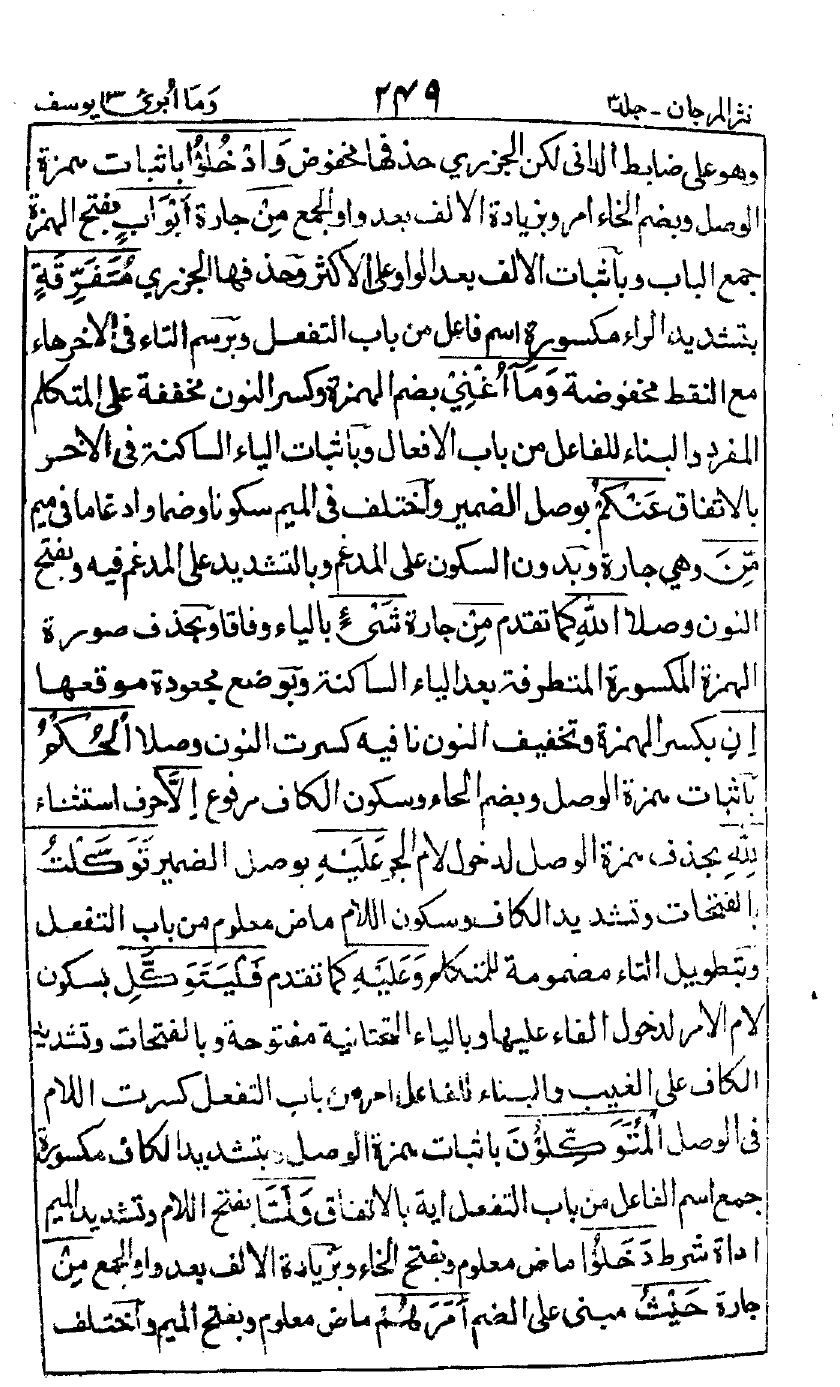 نثر المرجان - جلد ٣ ٢٤٩ وَمَا أُبَرِّئُ ١٣ يوسف
وهو على ضابط الدانى لكن الجزري حذفها مخفوض وَادْخُلُوْا باثبات همزة
الوصل وبضم الخاء امر وبزيادة الالف بعد واو الجمع مِنْ جارة أَبْوَابٍ بفتح الهمزة
جمع الباب وبآثبات الالف بعد الواو على الأكثر وحذفها الجزري مُتَفَرِّقَةٍ
بتشديد الراء مكسورة اسم فاعل من باب التفعل وبرسم التاء فى الاخر هاء
مع النقط مخفوضة وَمَآ أُغْنِيْ بضم الهمزة وكسر النون مخففة على المتكلم
المفرد والبناء للفاعل من باب الافعال وبآثبات الياء الساكنة فى الاخر
بالاتفاق عَنْكُمْ بوصل الضمير وآختلف فى الميم سكونا وضما وادغاما فى ميم
مِّنَ وهي جارة وبدون السكون على المدغم وبالتشديد على المدغم فيه وبفتح
النون وصلا اللهِ كما تقدم مِنْ جارة شَىْءٍ بالياء وفاقا وبحذف صورة
الهمزة المكسورة المتطرفة بعد الياء الساكنة وبوضع مجعودة موقعها
إِنِ بكسر الهمزة وتخفيف النون نافيه كسرت النون وصلا الْحُكْمُ
بآثبات همزة الوصل وبضم الحاء وسكون الكاف مرفوع إِلَّا حرف استثناء
لِلّٰهِ بحذف همزة الوصل لدخول لام الجر عَلَيْهِ بوصل الضمير تَوَكَّلْتُ
بالفتحات وتشديد الكاف وسكون اللام ماض معلوم من باب التفعل
وبتطويل التاء مضمومة للمتكلم وَعَلَيْهِ كما تقدم فَلْيَتَوَكَّلِ بسكون
لام الامر لدخول الفاء عليها وبالياء التحتانية مفتوحة وبالفتحات وتشديد
الكاف على الغيب والبناء للفاعل امر من باب التفعل كسرت اللام
فى الوصل الْمُتَوَكِّلُوْنَ باثبات همزة الوصل وبتشديد الكاف مكسورة
جمع اسم الفاعل من باب التفعل اية بالاتفاق وَلَمَّا بفتح اللام وتشديد الميم
اداة شرط دَخَلُوْا ماض معلوم وبفتح الخاء وبزيادة الالف بعد واو الجمع مِنْ
جارة حَيْثُ مبنى على الضم أَمَرَهُمْ ماض معلوم وبفتح الميم وآختلف